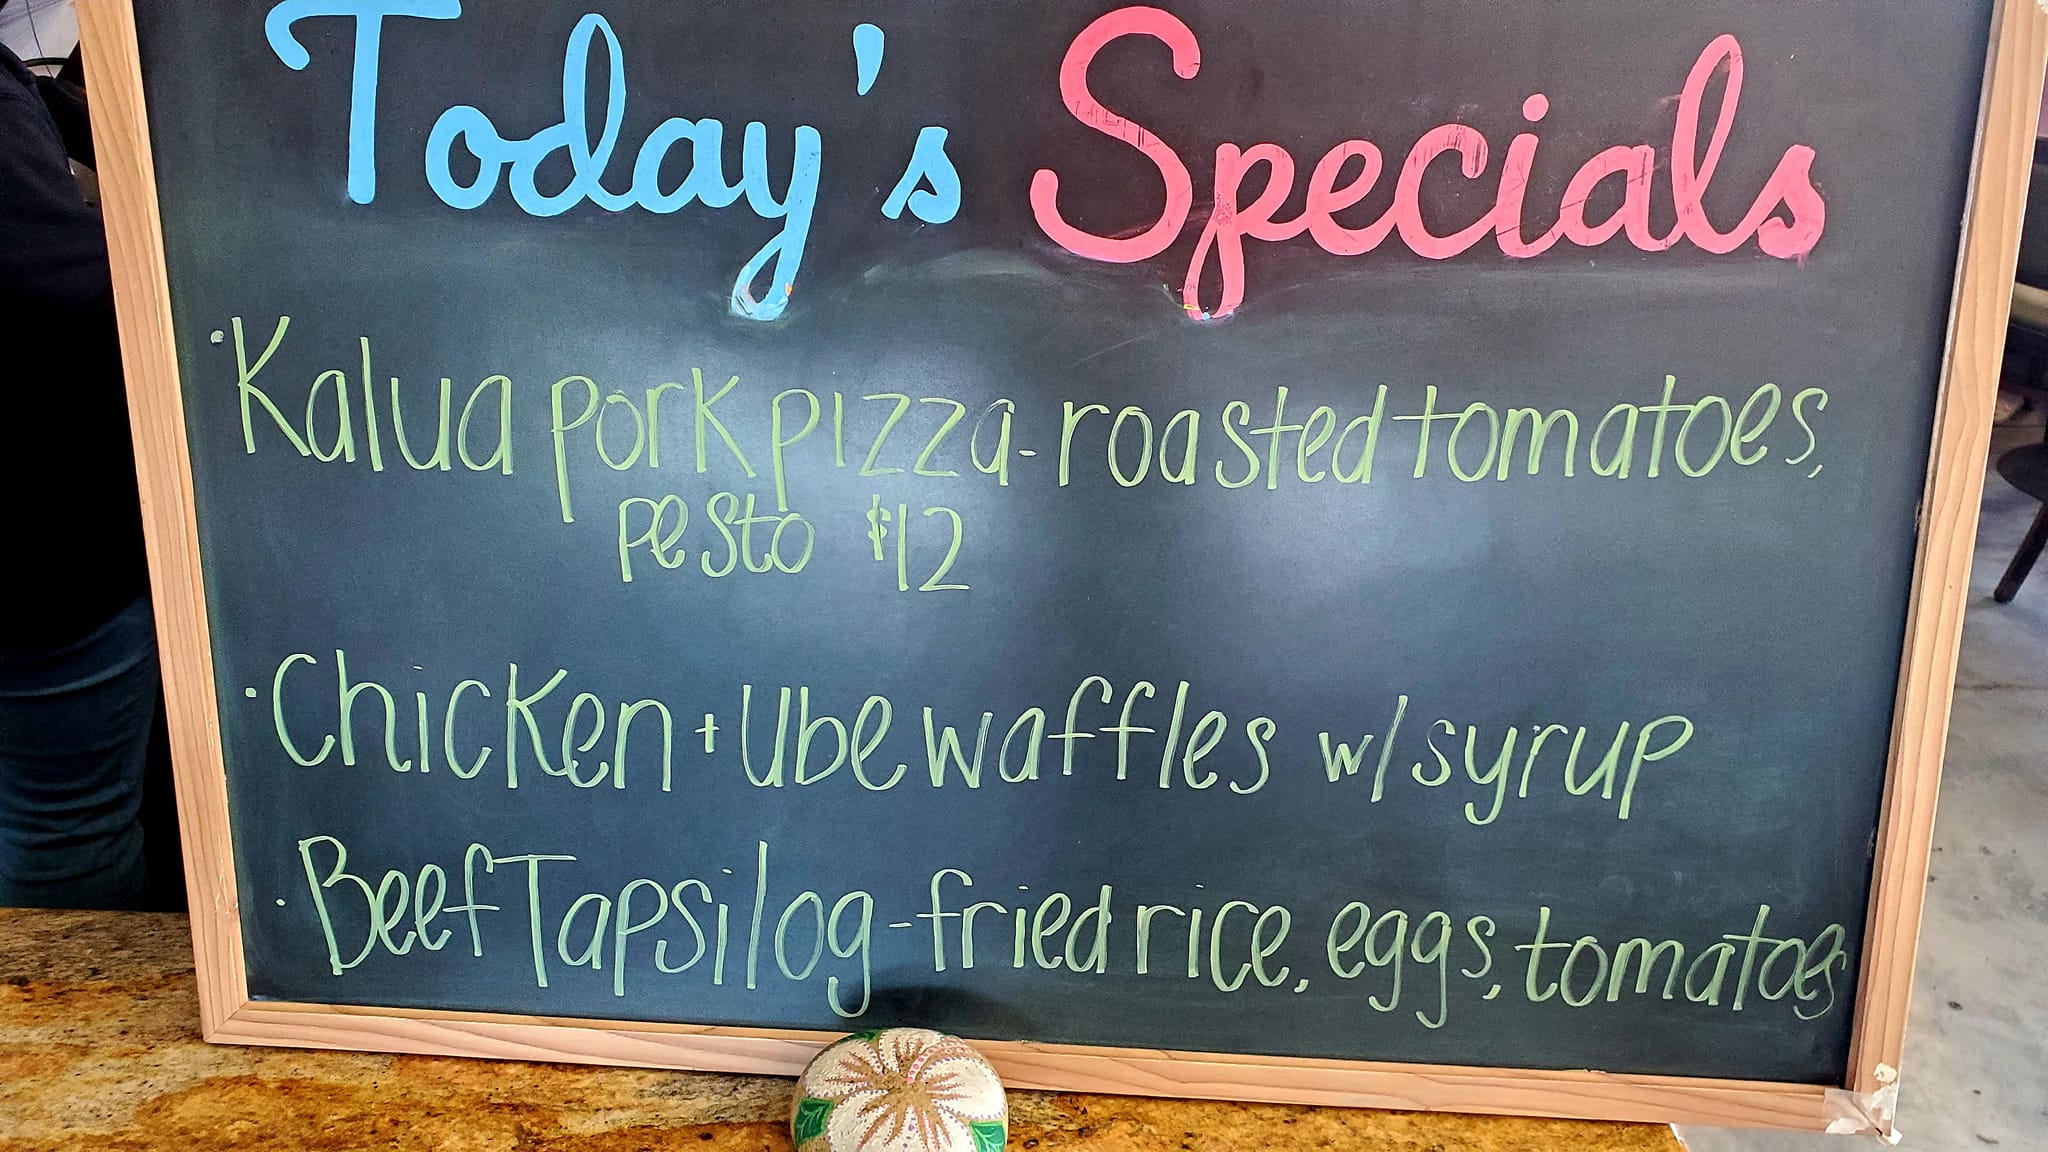 Today's Specials
• Kalua pork pizza - roasted tomatoes,
pesto $12
• Chicken + Ube waffles w/ syrup
• Beef Tapsilog - fried rice, eggs, tomatoes